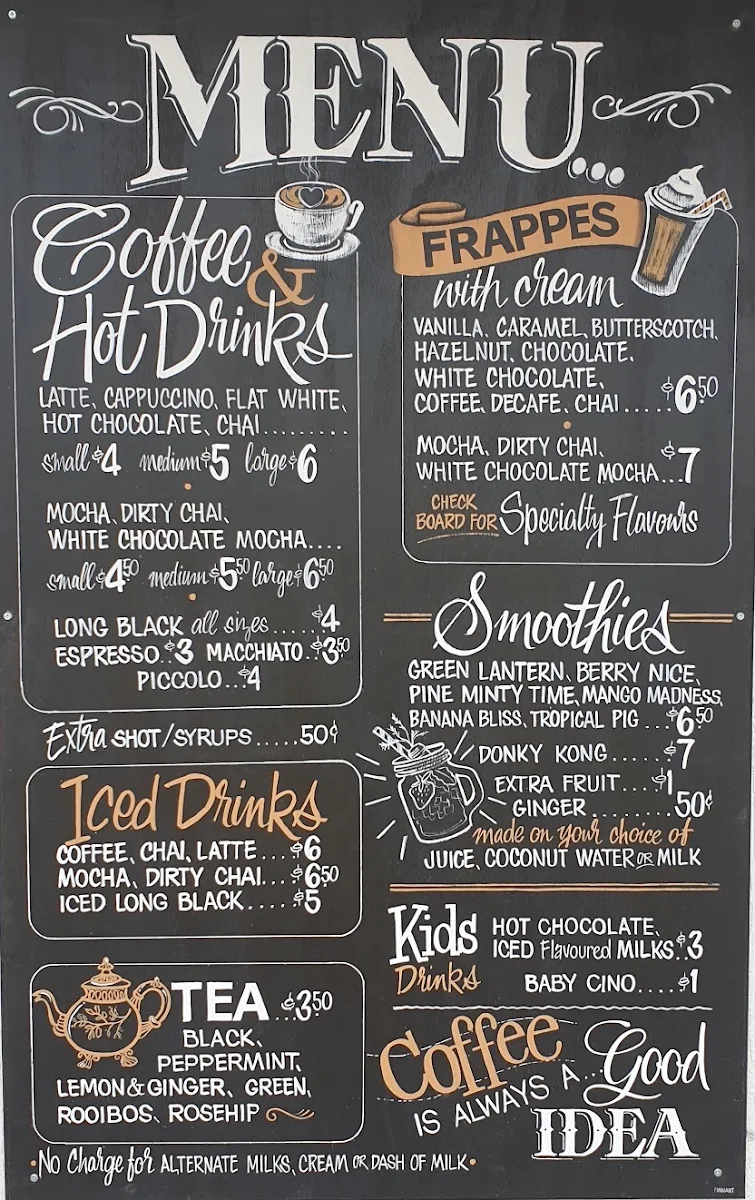 MENU...
Coffee
&
Hot Drinks
LATTE, CAPPUCCINO, FLAT WHITE,
HOT CHOCOLATE, CHAI.........
small $4 medium $5 large $6
MOCHA, DIRTY CHAI,
WHITE CHOCOLATE MOCHA....
small $4.50 medium $5.50 large $6.50
LONG BLACK all sizes.....$4
ESPRESSO..$3 MACCHIATO..$3.50
PICCOLO...$4
Extra SHOT/SYRUPS.....50¢
Iced Drinks
COFFEE, CHAI, LATTE....$6
MOCHA, DIRTY CHAI...$6.50
ICED LONG BLACK.....$5
TEA...$3.50
BLACK,
PEPPERMINT,
LEMON & GINGER, GREEN,
ROOIBOS, ROSEHIP
•No Charge for ALTERNATE MILKS, CREAM OR DASH OF MILK•
FRAPPES
with cream
VANILLA, CARAMEL, BUTTERSCOTCH,
HAZELNUT, CHOCOLATE,
WHITE CHOCOLATE,
COFFEE, DECAFE, CHAI.....$6.50
MOCHA, DIRTY CHAI,
WHITE CHOCOLATE MOCHA...$7
CHECK
BOARD FOR Specialty Flavours
Smoothies
GREEN LANTERN, BERRY NICE,
PINE MINTY TIME, MANGO MADNESS,
BANANA BLISS, TROPICAL PIG...$6.50
DONKY KONG......$7
EXTRA FRUIT....$1
GINGER........50¢
made on your choice of
JUICE, COCONUT WATER OR MILK
Kids
Drinks
HOT CHOCOLATE,
ICED Flavoured MILKS..$3
BABY CINO....$1
Coffee
IS ALWAYS A...Good
IDEA